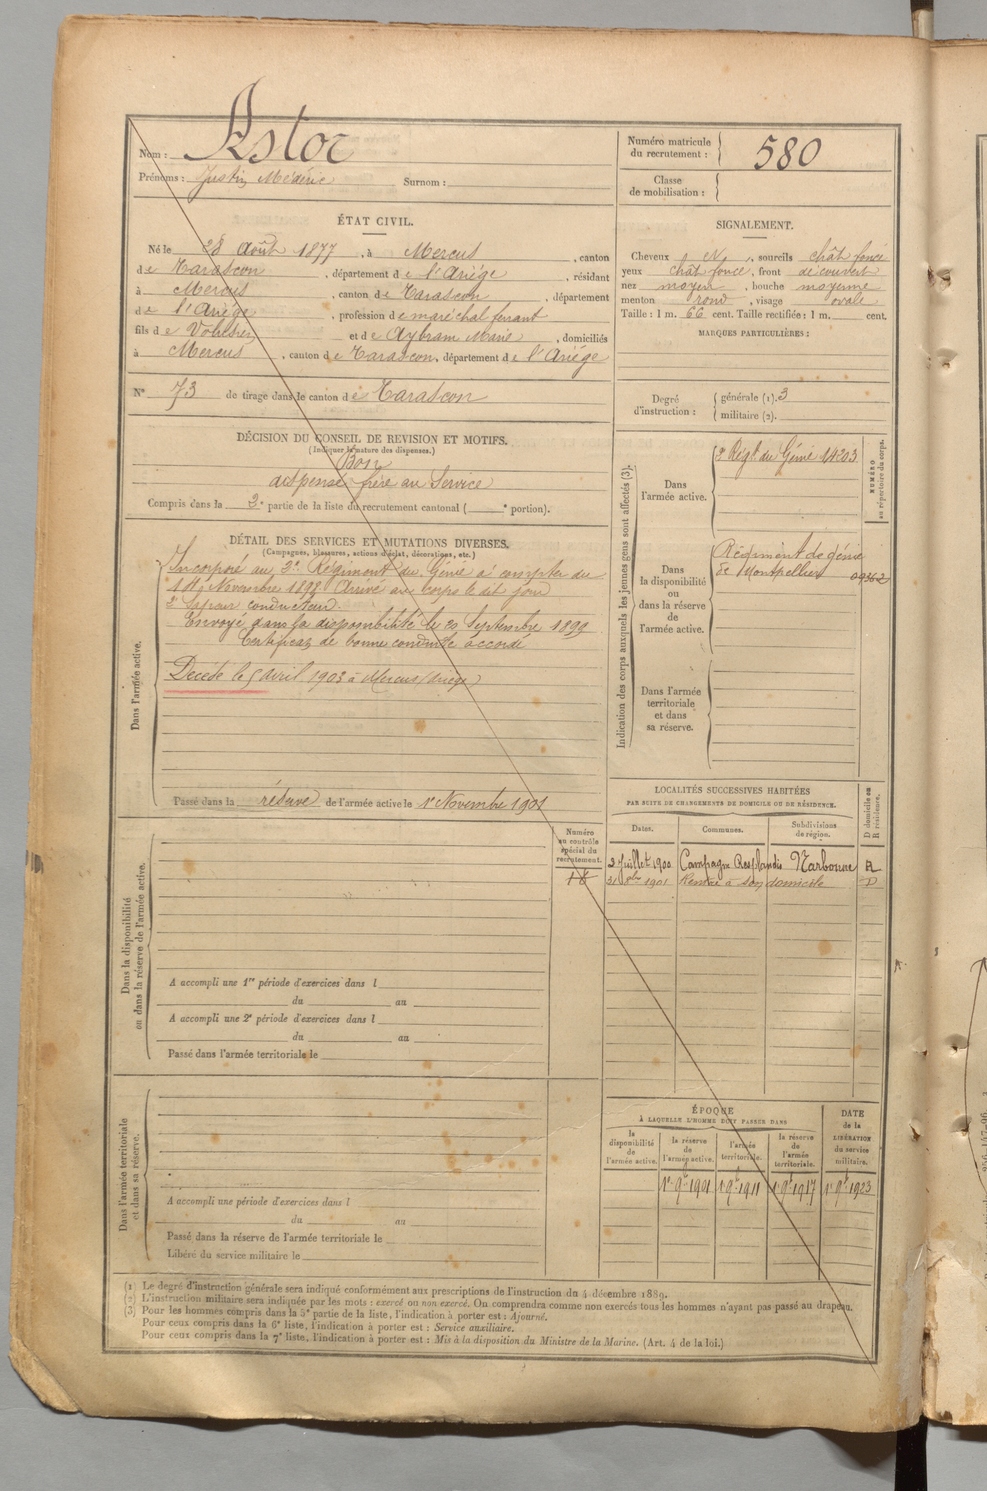 Nom : Astor
Prénoms : Justin Médéric Surnom :
Numéro matricule du recrutement : 580
Classe de mobilisation :
ÉTAT CIVIL.
Né le 28 Août 1877, à Mercus, canton
de Tarascon, département de l'Ariège, résidant
à Mercus, canton de Tarascon, département
de l'Ariège, profession de maréchal ferrant
fils de et de Aybram Marie, domiciliés
à Mercus, canton de Tarascon, département de l'Ariège
N° 73 de tirage dans le canton de Tarascon
SIGNALEMENT.
Cheveux N, sourcils chât foncé
yeux chât foncé, front découvert
nez moyen, bouche moyenne
menton rond, visage ovale
Taille : 1 m. 66 cent. Taille rectifiée : 1 m. cent.
MARQUES PARTICULIÈRES :
Degré d'instruction : générale (1). 3
militaire (2).
DÉCISION DU CONSEIL DE REVISION ET MOTIFS.
(Indiquer la nature des dispenses.)
Bon
dispensé frère au Service
Compris dans la 2e partie de la liste du recrutement cantonal ( e portion).
DÉTAIL DES SERVICES ET MUTATIONS DIVERSES.
(Campagnes, blessures, actions d'éclat, décorations, etc.)
Dans l'armée active.
Incorporé au 2e Régiment du Génie à compter du
Novembre 1898 Arrivé au corps le dit jour
2e Sapeur conducteur.
Envoyé dans la disponibilité le Septembre 1899
Certificat de bonne conduite accordé
Décédé le 5 avril 1903 à Mercus (Ariège)
Passé dans la réserve de l'armée active le 1er Novembre 1901
Indication des corps auxquels les jeunes gens sont affectés (3).
NUMÉRO au répertoire du corps.
Dans l'armée active.
2e Régt du Génie 14203
Dans la disponibilité ou dans la réserve de l'armée active.
Régiment de génie
de Montpellier 09362
Dans l'armée territoriale et dans sa réserve.
LOCALITÉS SUCCESSIVES HABITÉES
PAR SUITE DE CHANGEMENTS DE DOMICILE OU DE RÉSIDENCE.
D domicile ou R résidence.
Dates. Communes. Subdivisions de région.
2 Juillet 1900 Campagne Resplandis Narbonne R
31 8bre 1901 Rentré à son domicile D
Numéro au contrôle spécial du recrutement.
Dans la disponibilité ou dans la réserve de l'armée active.
A accompli une 1re période d'exercices dans l
du au
A accompli une 2e période d'exercices dans l
du au
Passé dans l'armée territoriale le
Dans l'armée territoriale et dans sa réserve.
A accompli une période d'exercices dans l
du au
Passé dans la réserve de l'armée territoriale le
Libéré du service militaire le
ÉPOQUE
À LAQUELLE L'HOMME DOIT PASSER DANS
DATE de la LIBÉRATION du service militaire.
la disponibilité de l'armée active.
la réserve de l'armée active.
l'armée territoriale.
la réserve de l'armée territoriale.
1er 9bre 1901 1er 9bre 1911 1er 9bre 1917 1er 9bre 1923
(1) Le degré d'instruction générale sera indiqué conformément aux prescriptions de l'instruction du 4 décembre 1889.
(2) L'instruction militaire sera indiquée par les mots : exercé ou non exercé. On comprendra comme non exercés tous les hommes n'ayant pas passé au drapeau.
(3) Pour les hommes compris dans la 5e partie de la liste, l'indication à porter est : Ajourné.
Pour ceux compris dans la 6e liste, l'indication à porter est : Service auxiliaire.
Pour ceux compris dans la 7e liste, l'indication à porter est : Mis à la disposition du Ministre de la Marine. (Art. 4 de la loi.)